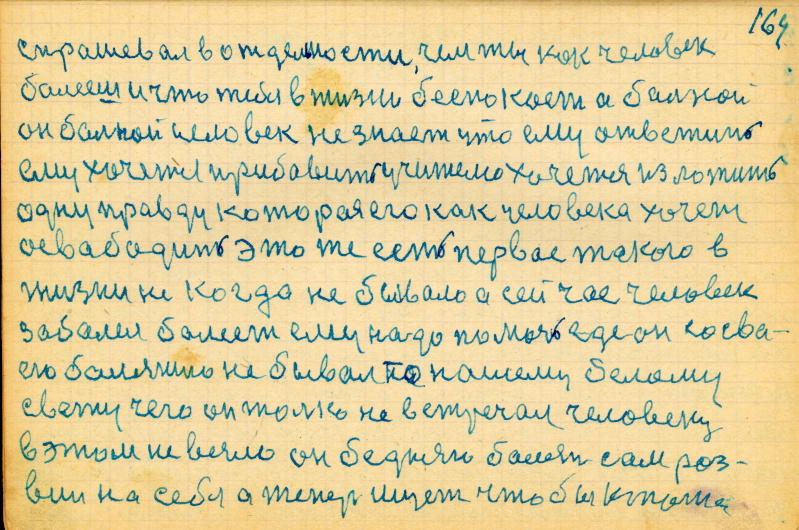 164
спрашевал вотделности, чем ты как человек
балееш и что тебя в жизни беспокоет а балной
он балной человек незнает что ему ответить
ему хочется прибавить учителю хочется изложить
одну правду которая его как человека хочет
освабодить это же есть первае такого в
жизни не когда не бывало а сейчас человек
забалел балеет ему надо помочь где он сосва-
ею не бывал по нашему белому
свету чего он толко не встречал человеку
в этом невезло он бедняю сам роз-
вил на себя а тепер ищет чтобы кто та